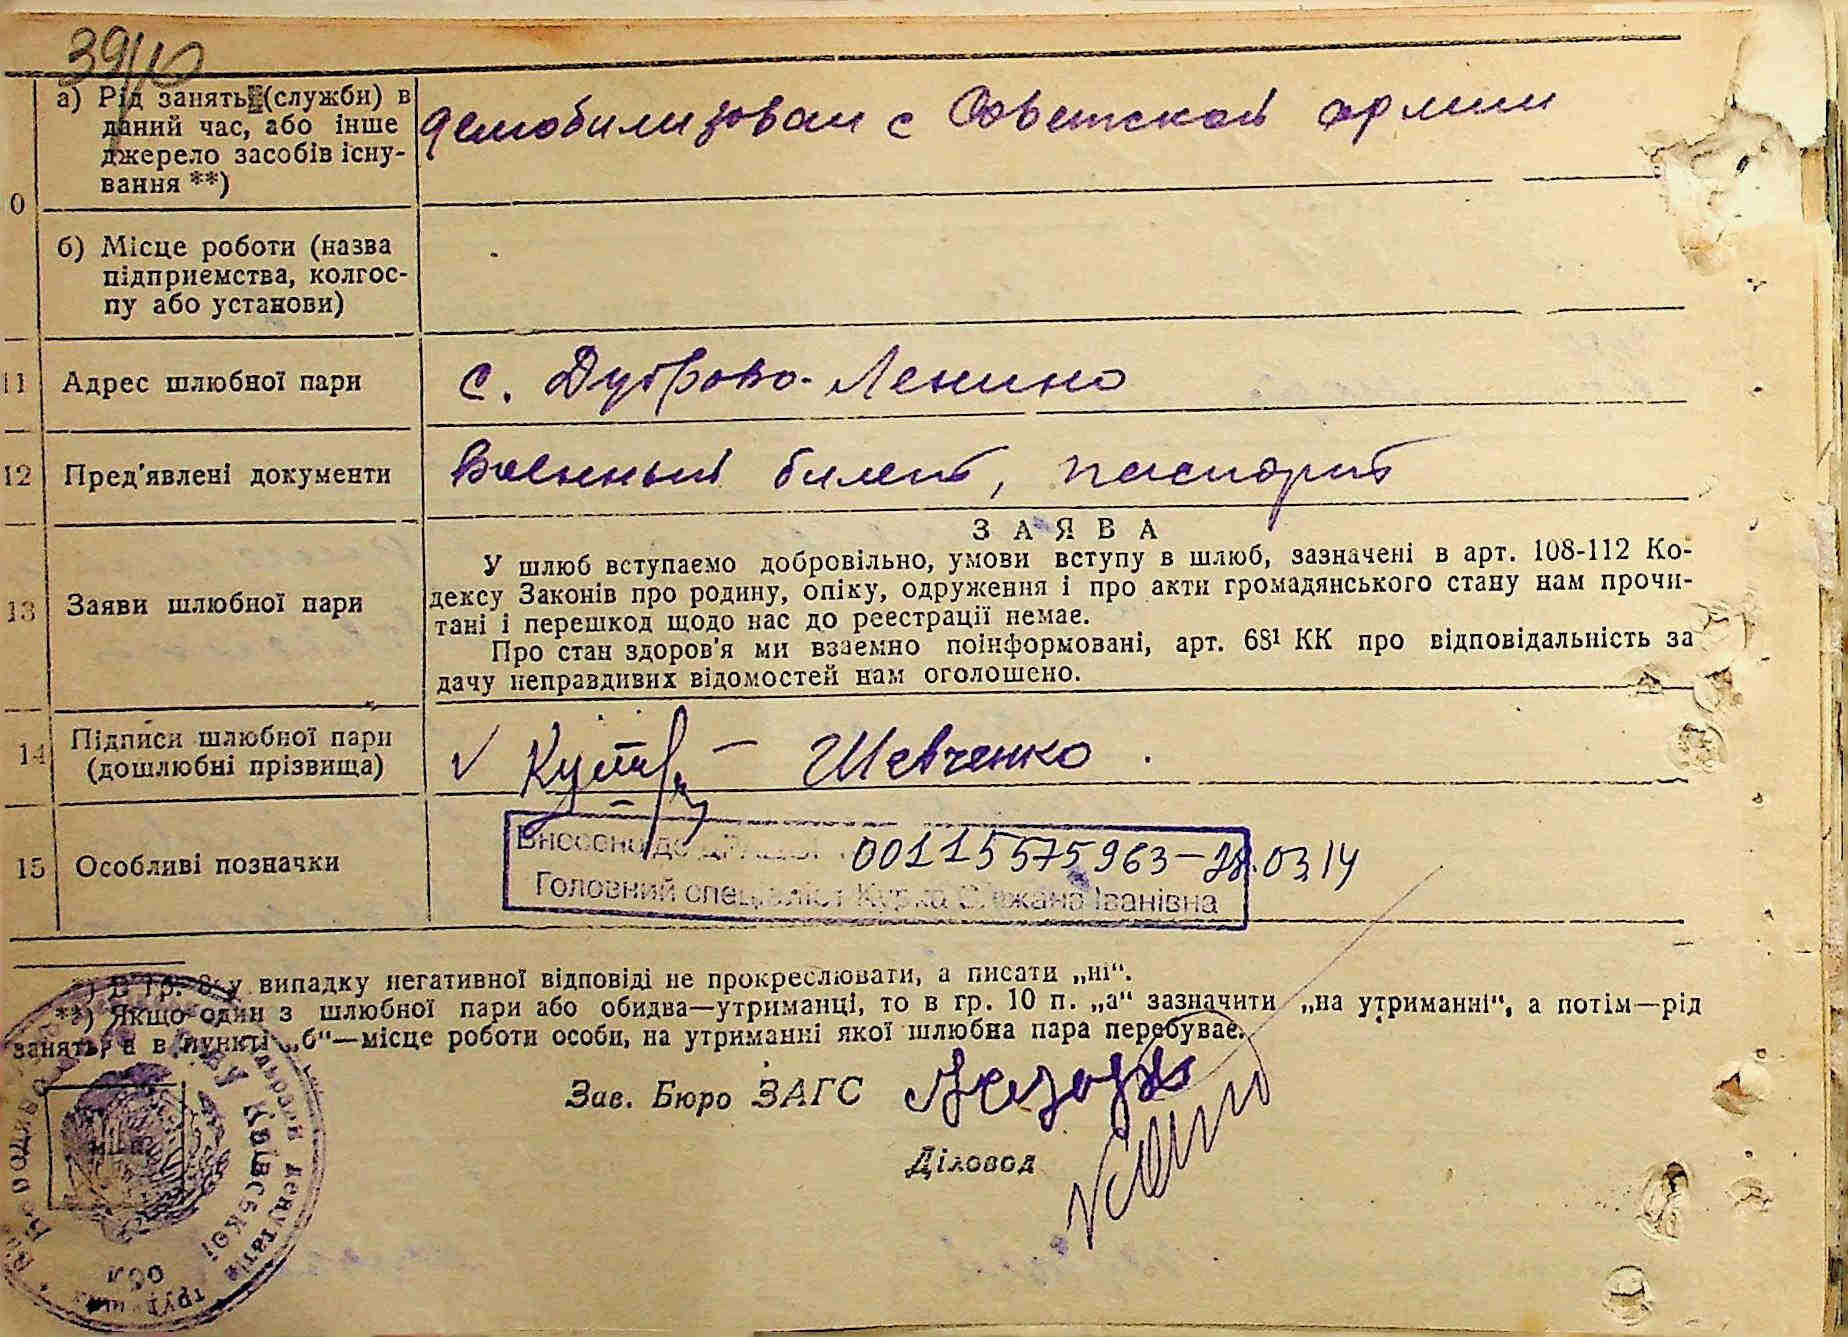 39/10
0
а) Рід занять (служби) в
даний час, або інше
джерело засобів існу-
вання **)
демобилизован с Советской армии
б) Місце роботи (назва
підприємства, колгос-
пу або установи)
11 Адрес шлюбної пари
с. Дуброво-Ленино
12 Пред'явлені документи
Военный билет, паспорт
13 Заяви шлюбної пари
ЗАЯВА
У шлюб вступаємо добровільно, умови вступу в шлюб, зазначені в арт. 108-112 Ко-
дексу Законів про родину, опіку, одруження і про акти громадянського стану нам прочи-
тані і перешкод щодо нас до реєстрації немає.
Про стан здоров'я ми взаємно поінформовані, арт. 68¹ КК про відповідальність за
дачу неправдивих відомостей нам оголошено.
14 Підписи шлюбної пари
(дошлюбні прізвища)
Шевченко
15 Особливі позначки
Внесено до 00115575963-28.03.14
Головний спеціаліст Іванівна
*) В гр. 8 у випадку негативної відповіді не прокреслювати, а писати „ні“.
**) Якщо один з шлюбної пари або обидва—утриманці, то в гр. 10 п. „а“ зазначити „на утриманні“, а потім—рід
занять, а в пункті „б“—місце роботи особи, на утриманні якої шлюбна пара перебуває.
Зав. Бюро ЗАГС
Діловод
Київської
обл
депутатів